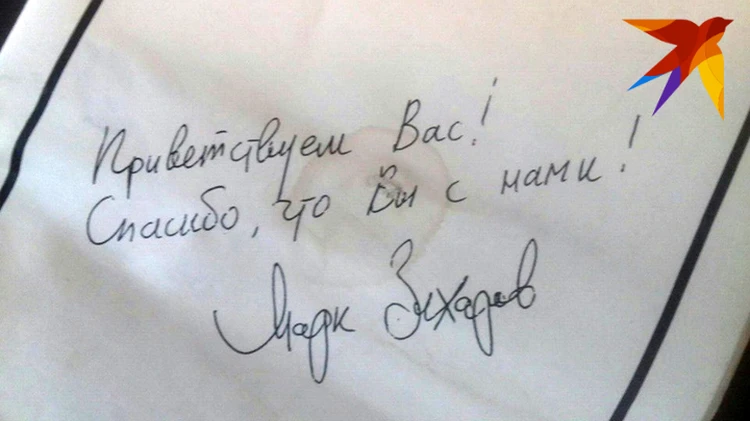 Приветствуем Вас!
Спасибо, что Вы с нами!
Марк Захаров